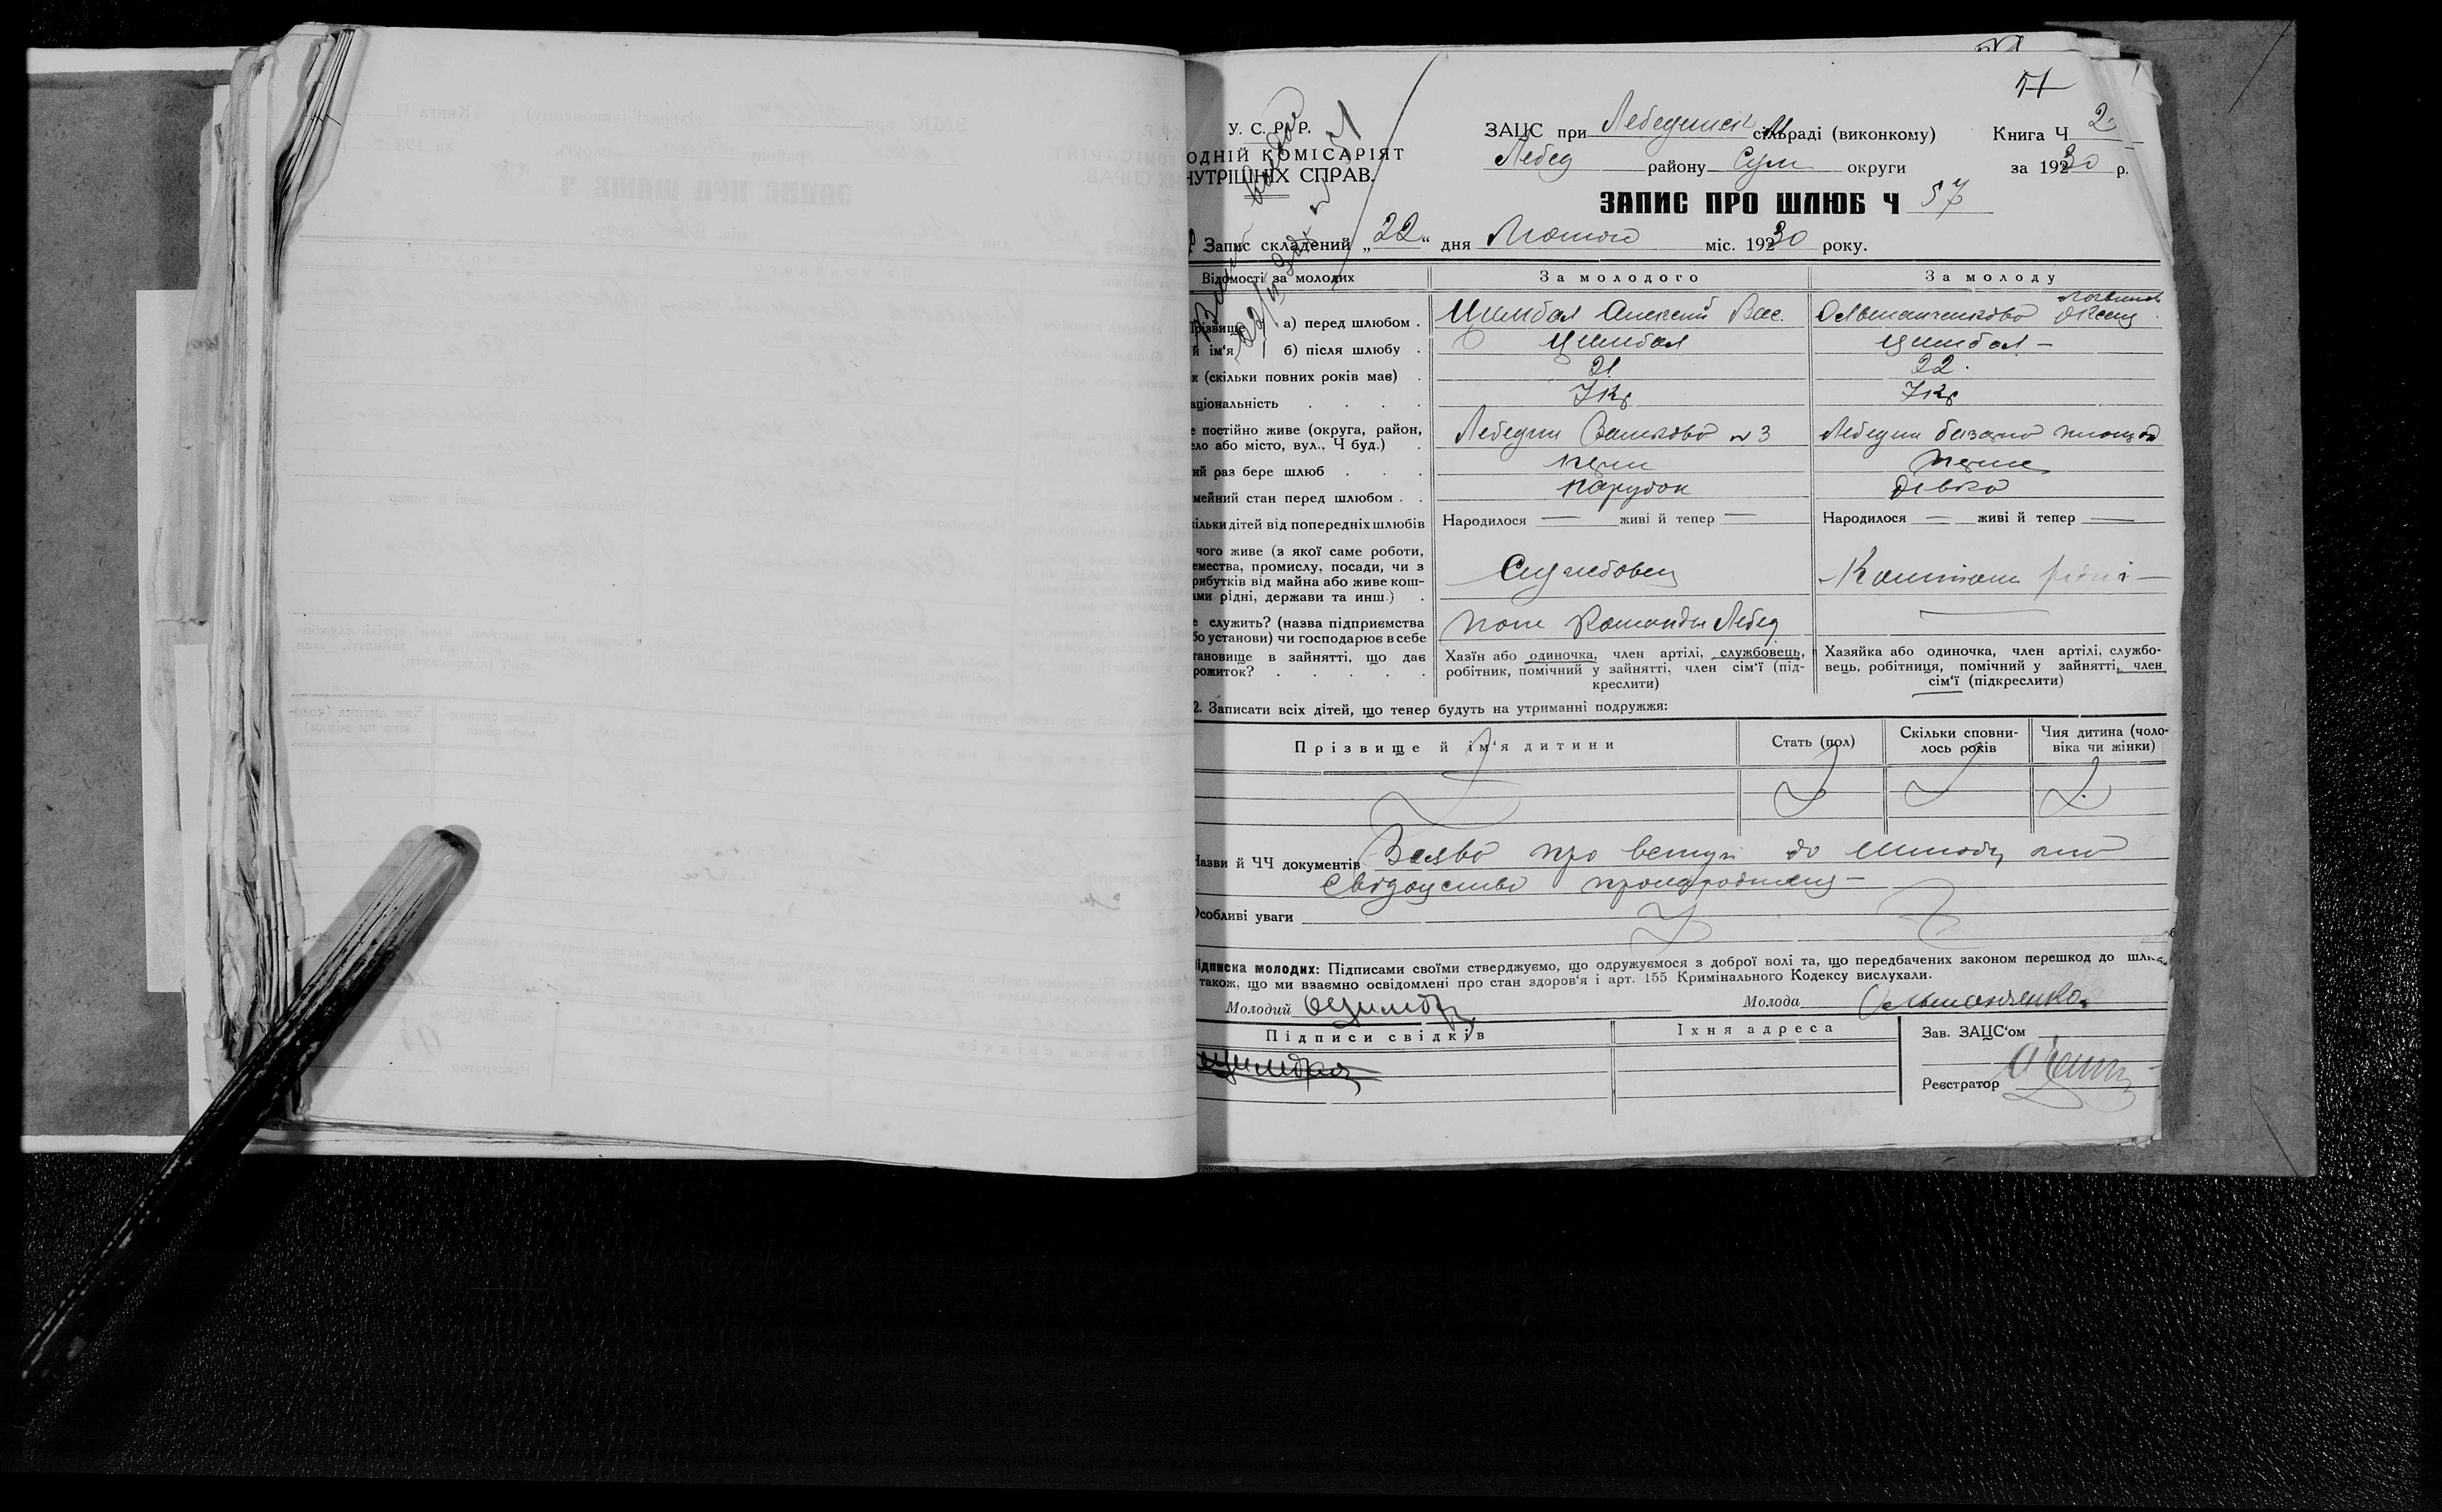 У. С. Р. Р.
ОДНІЙ КОМІСАРІЯТ
НУТРІШНІХ СПРАВ.
ЗАЦС при Лебединськ сільраді (виконкому) Книга Ч 2
Лебед району Сум округи за 1930 р.
ЗАПИС ПРО ШЛЮБ Ч 57
Запис складений „22“ дня Лютого міс. 1930 року.
Відомості за молодих За молодого За молоду
Прізвище а) перед шлюбом . Цимбал Алексій Вас.
й ім'я б) після шлюбу . Цимбал Цимбал –
к (скільки повних років має) . 21 22.
аціональність . . . . Укр Укр
е постійно живе (округа, район, Лебедин №3 Лебедин базарна площа
ело або місто, вул., Ч буд.) .
ий раз бере шлюб . . . перш перше
мейний стан перед шлюбом . . парубок дівка
кільки дітей від попередніх шлюбів Народилося — живі й тепер — Народилося — живі й тепер —
чого живе (з якої саме роботи,
емества, промислу, посади, чи з Службовец Коштом рідні –
рибутків від майна або живе кош-
ами рідні, держави та инш.) .
е служить? (назва підприємства Пож Команды Лебед —
бо установи) чи господарює в себе
тановище в зайнятті, що дає Хазїн або одиночка, член артілі, службовець, Хазяйка або одиночка, член артілі, службо-
рожиток? . . . . . робітник, помічний у зайнятті, член сім'ї (під- вець, робітниця, помічний у зайнятті, член
креслити) сім'ї (підкреслити)
2. Записати всіх дітей, що тепер будуть на утриманні подружжя:
Прізвище й ім'я дитини Стать (пол) Скільки сповни- Чия дитина (чоло-
лось років віка чи жінки)
Назви й ЧЧ документів Заява про вступ до шлюбу та
свідоцтво
Особливі уваги
ідписка молодих: Підписами своїми стверджуємо, що одружуємося з доброї волі та, що передбачених законом перешкод до шлю
також, що ми взаємно освідомлені про стан здоров'я і арт. 155 Кримінального Кодексу вислухали.
Молодий Молода
Підписи свідків Їхня адреса Зав. ЗАЦС'ом
Реєстратор